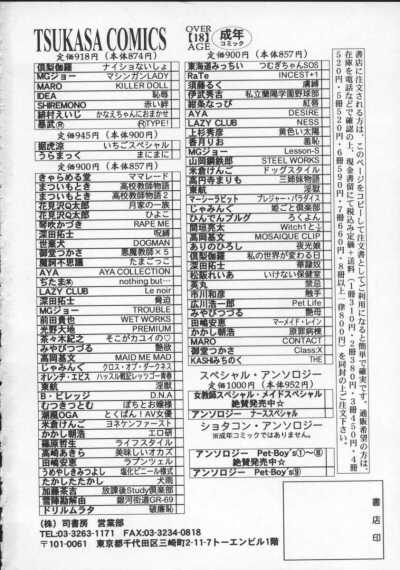 TSUKASA COMICS
OVER
【18】
AGE
成年
コミック
定価918円（本体874円）
倶梨伽羅 ナイショないしょ
MGジョー マシンガンLADY
MARO KILLER DOLL
IDEA 恥辱
SHIREMONO 赤い絆
緒村えいじ かなえちゃんにおまかせ
R[TYPE!
定価945円（本体900円）
据虎涼 いちごスペシャル
うらまっく まにまに
定価900円（本体857円）
きゃらめる堂 ママレード
まついもとき 高校教師物語
まついもとき 高校教師物語2
花見沢Q太郎 月家の一族
花見沢Q太郎 ひよこ
琴吹かづき RAPE ME
深田拓士 呪縛
世棄犬 DOGMA
御堂つかさ 悪魔教師×5
たまごっこ
AYA AYA COLLECTION
ぢたま㈱ nothing but…
LAZY CLUB Le noir
深田拓士 脅迫
MGジョー TROUBLE
前田貴也 WET WORKS
光野大地 PREMIUM
茶々木紀之 そこがカユイの♡
みやびつづる 艶欲
高岡基文 MAID ME MAD
じゃみんぐ クロス・オブ・ダークネス
オレンヂ・エビス ハッスル戦記レッツゴー青春
東航 淫獣
B・ビレッジ D.N.A
むつきつとむ ぽちとお嬢様
瀬能OGA とくばん！AV女優
米倉けんご ヨネケンファースト
かかし朝浩 エロ研
篠原哲生 ライフスタイル
高崎あきら 美味しいオカズ
田嶋安恵 ラプンツェル
うめやしきみつよし 塩化ビニール様式
たかしたたかし 犬雨
加藤茶吉 放課後Study倶楽部
雲降勘解由 銀河街道GR-69
ドリルムラタ 破廉恥
定価900円（本体857円）
東海道みっちい つむぎちゃんSOS
RaTe INCEST+1
須藤るく 虜縛
伊武秀吉 私立蘭陽学園野球部
紺条なっび 紅唇
AYA DESIRE
LAZY CLUB NESS
上杉秀彦 黄色い太陽
香月りお 羞恥
MGジョー Lesson-S
山岡鋼鉄郎 STEEL WORKS
米倉けんご ドッグスタイル
高円寺まりも 三姉妹物語
東航 淫獄
マーシーラビット プレジャー・パラダイス
じゃみんぐ 姫ごと倶楽部
ひんでんブルグ ろくよん
間垣亮太 Witch1と½
高岡基文 MOSAIQUE CLIP
ありのひろし 夜光娘
倶梨伽羅 私の世界が変わる日
深田拓士 華隷奴
松阪れいあ いけない保健室
英丸 禁忌
市川和彦 触手
広川浩一郎 Pet Life
みやびつづる 艶母
田嶋安恵 マーメイド・レイン
かかし朝浩 原罪病棟
MARO CONTACT
御堂つかさ Class:X
KASHみちのく THE
スペシャル・アンソロジー
定価1000円（本体952円）
女教師スペシャル・メイドスペシャル
絶賛発売中☆
アンソロジー ナーススペシャル
ショタコン・アンソロジー
※成年コミックではありません。
アンソロジー Pet-Boy's①～⑧
絶賛発売中☆
アンソロジー Pet-Boy's⑨
書店に注文される方は、このページをコピーして注文書としてご利用になると簡単で確実です。通販希望の方は、
在庫を電話などで確認の上、現金書留にて税込み定価＋送料（1冊310円・2冊380円・3冊450円・4冊
520円・5冊520円・6冊590円・7冊660円・8冊以上一律800円）を同封の上ご注文下さい。
書店印
（株）司書房 営業部
TEL:03-3263-1171 FAX:03-3234-0818
〒101-0061 東京都千代田区三崎町2-11-7トーエンビル1階